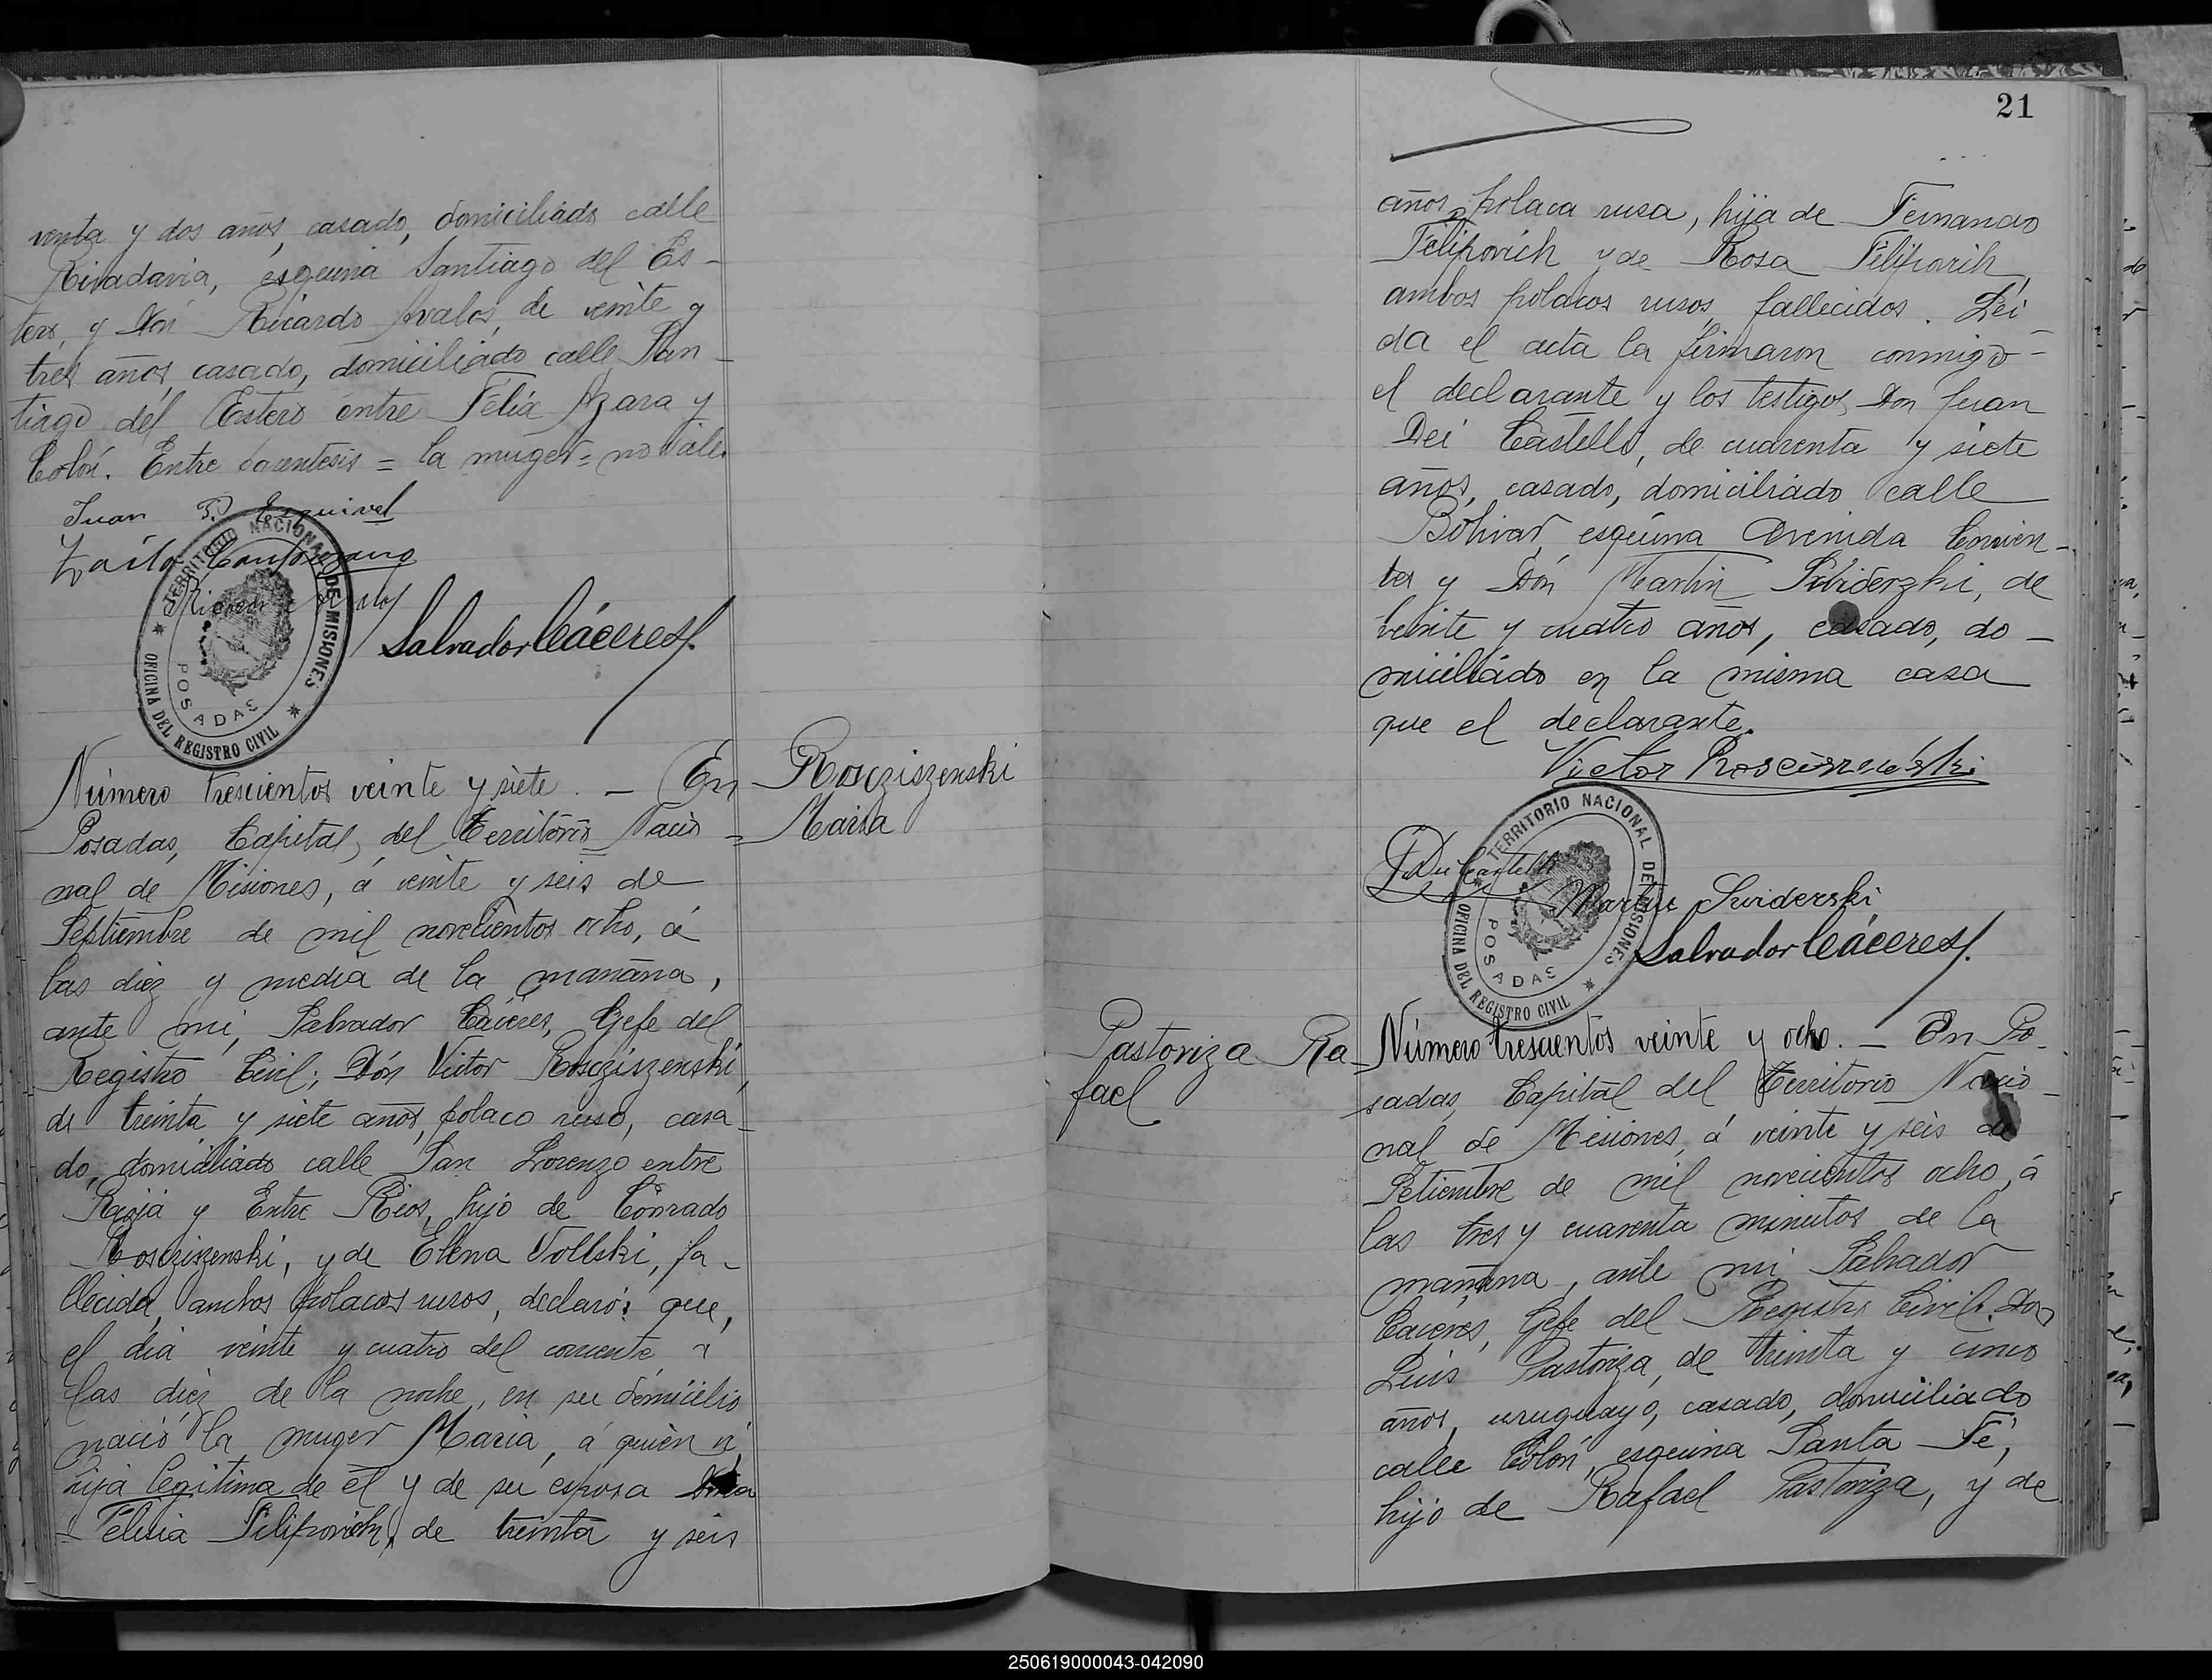 venta y dos años, casado, domiciliado calle
Rivadavia, esquina Santiago del Es-
tero, y Don Ricardo Avalos, de veinte y
tres años, casado, domiciliado calle San-
tiago del Estero entre Félix Azara y
Colón. Entre parentesis = la muger = no vale.
Juan P. Esquivel
Ricardo Avalos
Salvador Cáceres
TERRITORIO NACIONAL DE MISIONES
POSADAS
OFICINA DEL REGISTRO CIVIL
Número trescientos veinte y siete. — En
Posadas, Capital, del Territorio Nacio=
nal de Misiones, á veinte y seis de
Septiembre de mil novecientos ocho, á
las diez y media de la mañana,
ante mi, Salvador Cáceres, Gefe del
Registro Civil; Dón Victor Roscziszenski,
de treinta y siete años, polaco ruso, casa-
do, domiciliado calle San Lorenzo entre
Rioja y Entre Rios, hijo de Conrado
Roscziszenski, y de Elena Vollski, fa-
llecida, ambos polacos rusos, declaró: que,
el dia veinte y cuatro del corriente á
las diez de la noche, en su domicilio
nació la muger Maria, á quién ví
hija legitima de él y de su esposa Doña
Felisia Filipovich, de treinta y seis
Roscziszenski
Maria
21
años, polaca rusa, hija de Fernando
Filipovich y de Rosa Filipovich,
ambos polacos rusos, fallecidos. Lei-
da el acta la firmaron conmigo
el declarante y los testigos Don Juan
Dei Castelli, de cuarenta y siete
años, casado, domiciliado calle
Bolivar, esquina Avenida Corrien-
tes y Dón Martin Sviderzki, de
veinte y cuatro años, casado, do-
miciliado en la misma casa
que el declarante.
Victor Rosciszewski
J. Dei Castelli
Martin Swiderski
Salvador Cáceres
TERRITORIO NACIONAL DE MISIONES
POSADAS
OFICINA DEL REGISTRO CIVIL
Pastoriza Ra-
fael
Número trescientos veinte y ocho. — En Po-
sadas, Capital del Territorio Nacio-
nal de Misiones, á veinte y seis de
Setiembre de mil novecientos ocho, á
las tres y cuarenta minutos de la
mañana, ante mi Salvador
Cáceres, Gefe del Registro Civil, Don
Luis Pastoriza, de treinta y cinco
años, uruguayo, casado, domiciliado
calle Colón, esquina Santa Fé,
hijo de Rafael Pastoriza, y de
250619000043-042090